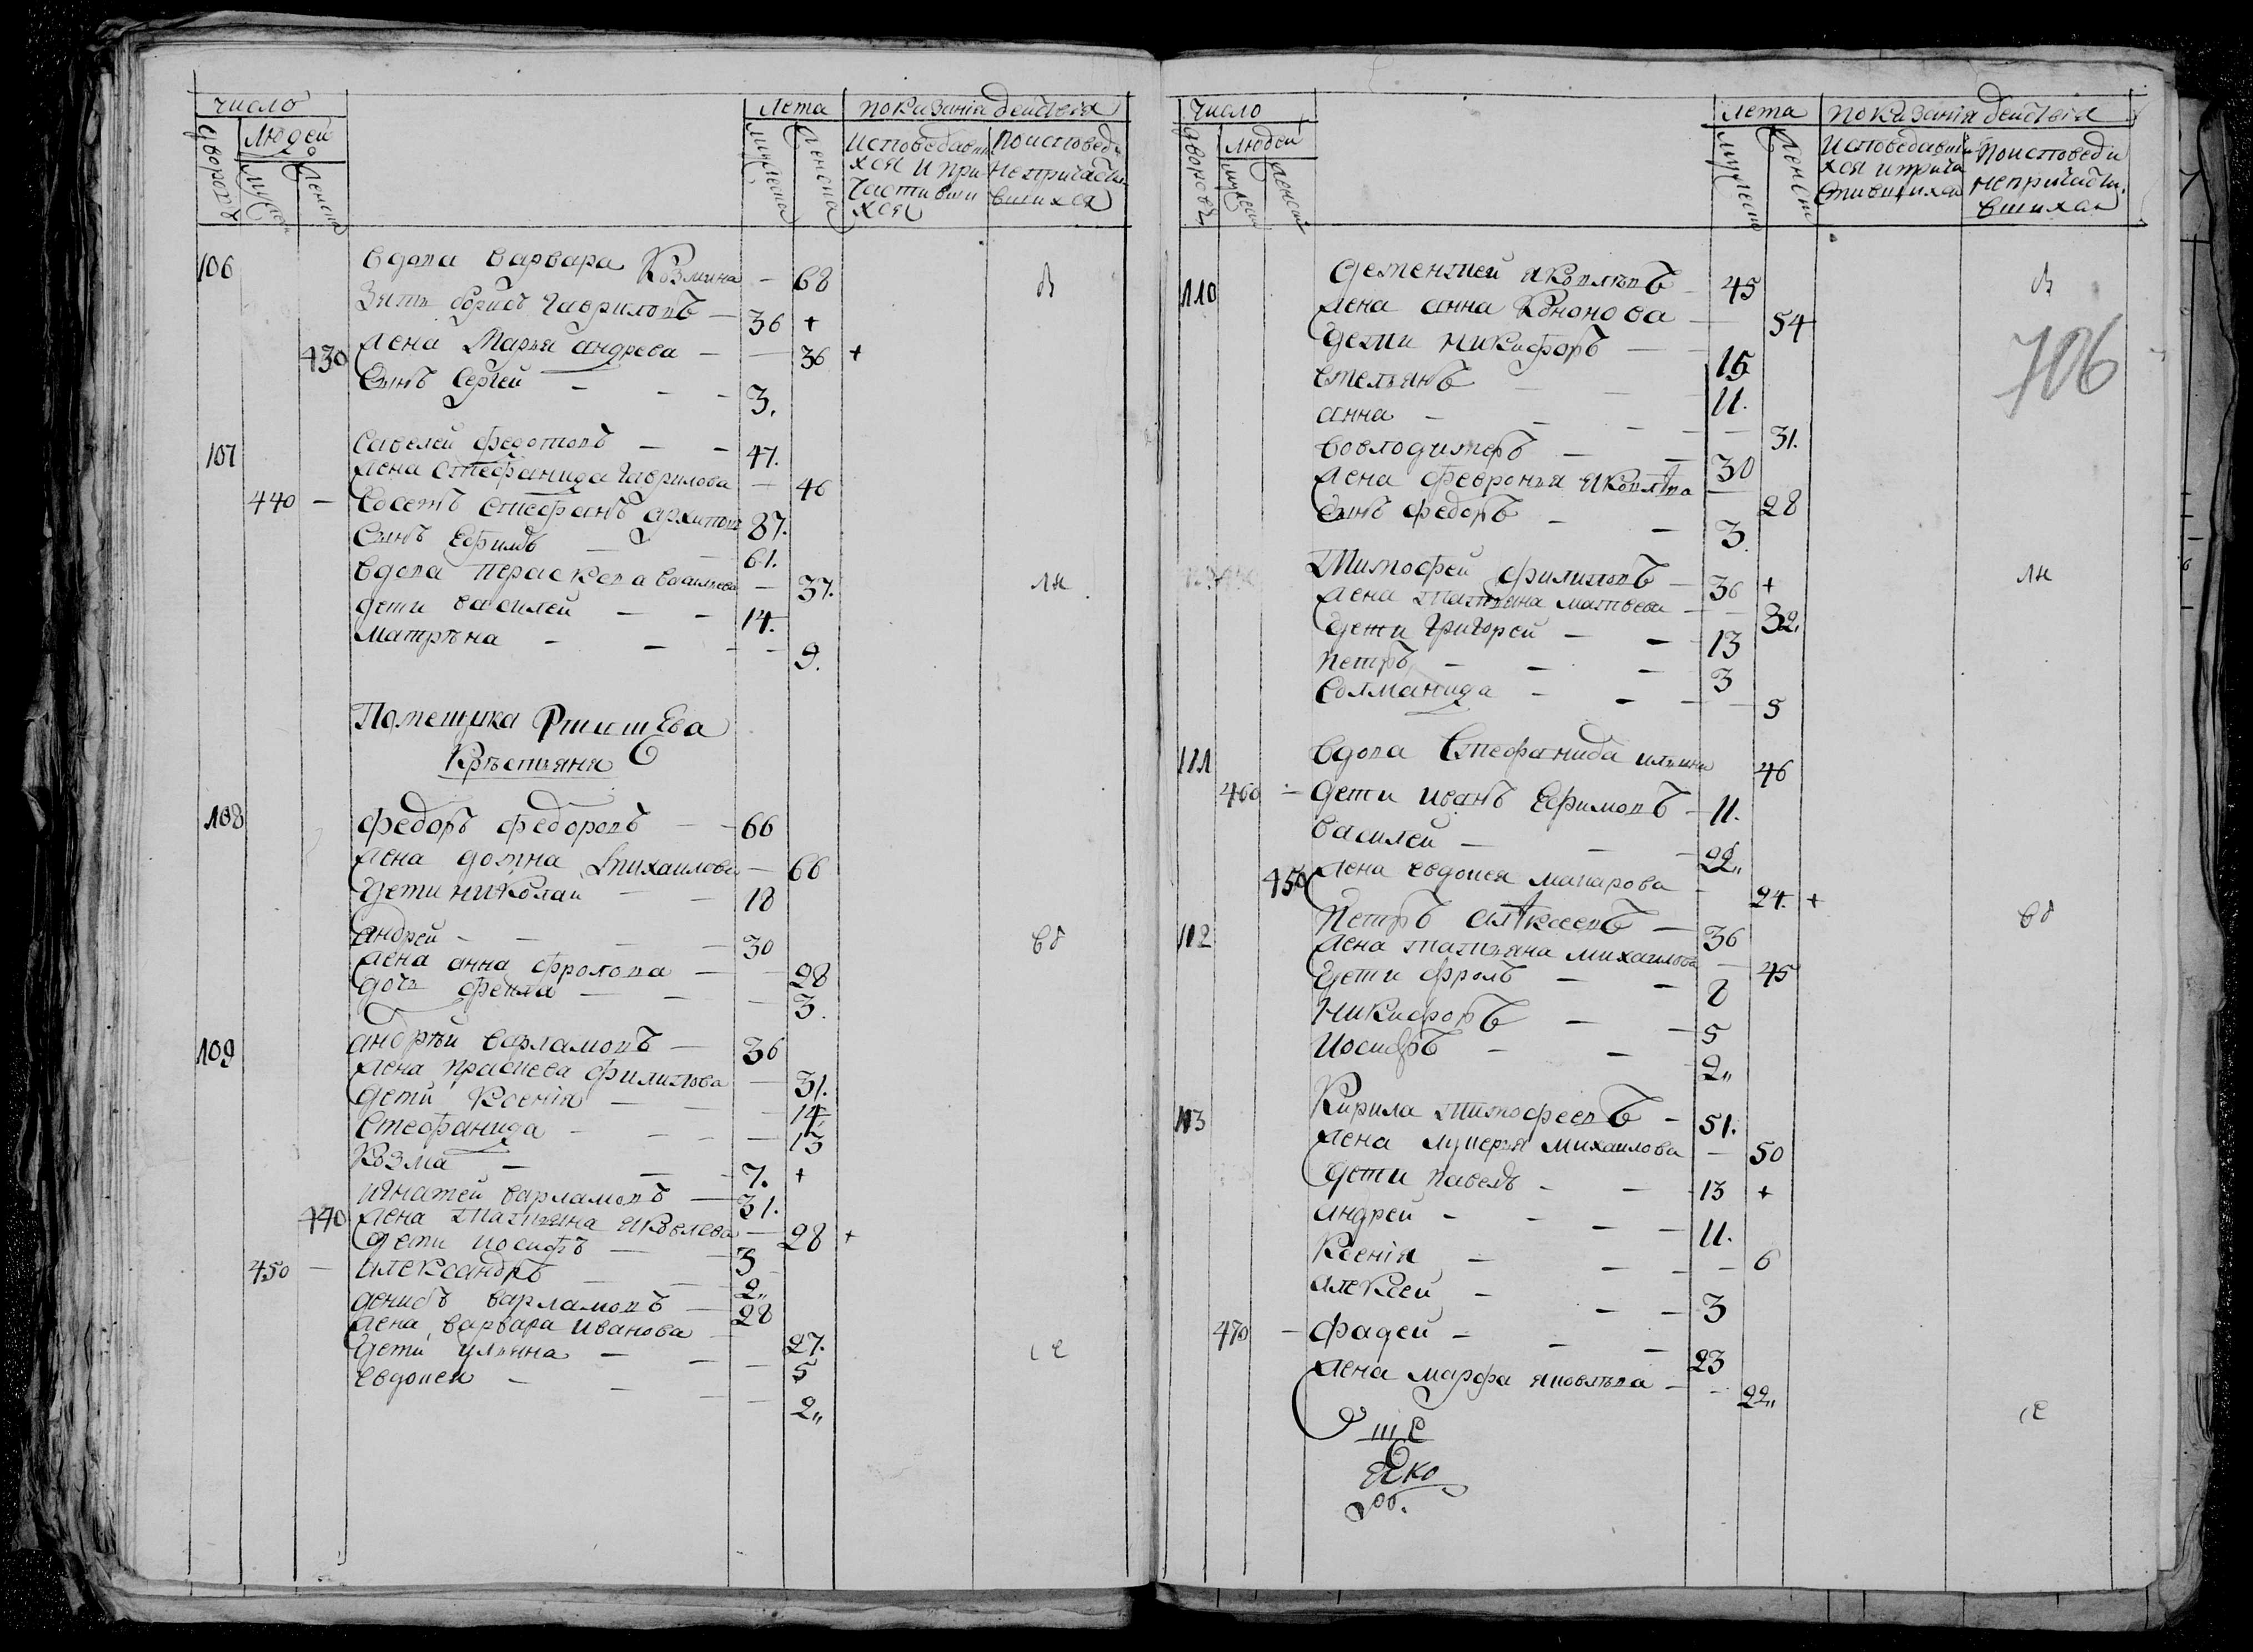 число
лета показания действия
дворовъ
людей
мужеска
женска
мужеска
женска
исповедавши
хся и при
частивши
хся
по исповеди
не причасти
вшихся
106 вдова варвара Козмина - 68
зять борисъ гаврилопъ - 36 +
430 жена Марья андреева - - 36 +
сынъ Сергей - - - 3.
107 савелей федотопъ - - 47.
жена Стефанида гаврилова - 46
440 - Соседъ стефанъ архипопъ 87.
сынъ Ефимъ - - 61.
вдопа параскепа василиева - 37.
дети василей - - 14.
матрѣна - - - - 9.
лн
Помещика Ртищева
Крѣстьяня
108 федоръ федоропъ - - 66
жена домна михаилова - 66
дети николаи - - 18
андрей - - - - 30
вд
жена анна фролопа - - 28
дочь фекла - - - 3.
109 андрѣй варламопъ - 36
жена праскева филипова - 31.
дети Ксенія - - - 14.
Стефанида - - - - 13
Козма - - - 7. +
игнатей варламопъ - 31.
440 жена татьяна яковлева - 28 +
дети иосифъ - - 3
450 - александръ - - 2„
денисъ варламопъ - 28
жена варвара иванова - 27.
дети ульяна - - - 5
се
евдокея - - - - 2„
число
лета показания действия
дворовъ
людей
мужеска
женска
мужеска
женска
исповедавши
хся и прича
стившихся
по исповеди
не причасти
вшихся
110 Дементей яковлепъ - 45
жена анна Кононова - - 54
706
дети никифоръ - - 15
емельянъ - - 11.
анна - - - - - 31.
вовлодимеръ - - 30
жена февронья яковлѣва - 28
сынъ федоръ - - 3.
Тимофей филипопъ - 36 +
лн
жена татьяна матвеева - - 32.
дети григорей - - 13
петръ - - - 3
Соломанида - - - - 5
111 вдопа Стефанида ильина 46
460 - дети иванъ Ефимопъ - 11.
василей - - - 22„
450 жена евдокея макарова - 24. +
112 Петръ алѣксеепъ - 36
вд
жена татьяна михаилова - 45
дети фролъ - - 8
никифоръ - - 5
иосифъ - - 2„
113 Кирила тимофеепъ - 51.
жена лукерья михаилова - 50
дети павелъ - - 13 +
андрей - - - - 11.
Ксенія - - - - 6
алексей - - - 3
470 - фадей - - - 23
жена марфа яковлѣва - - 22„
се